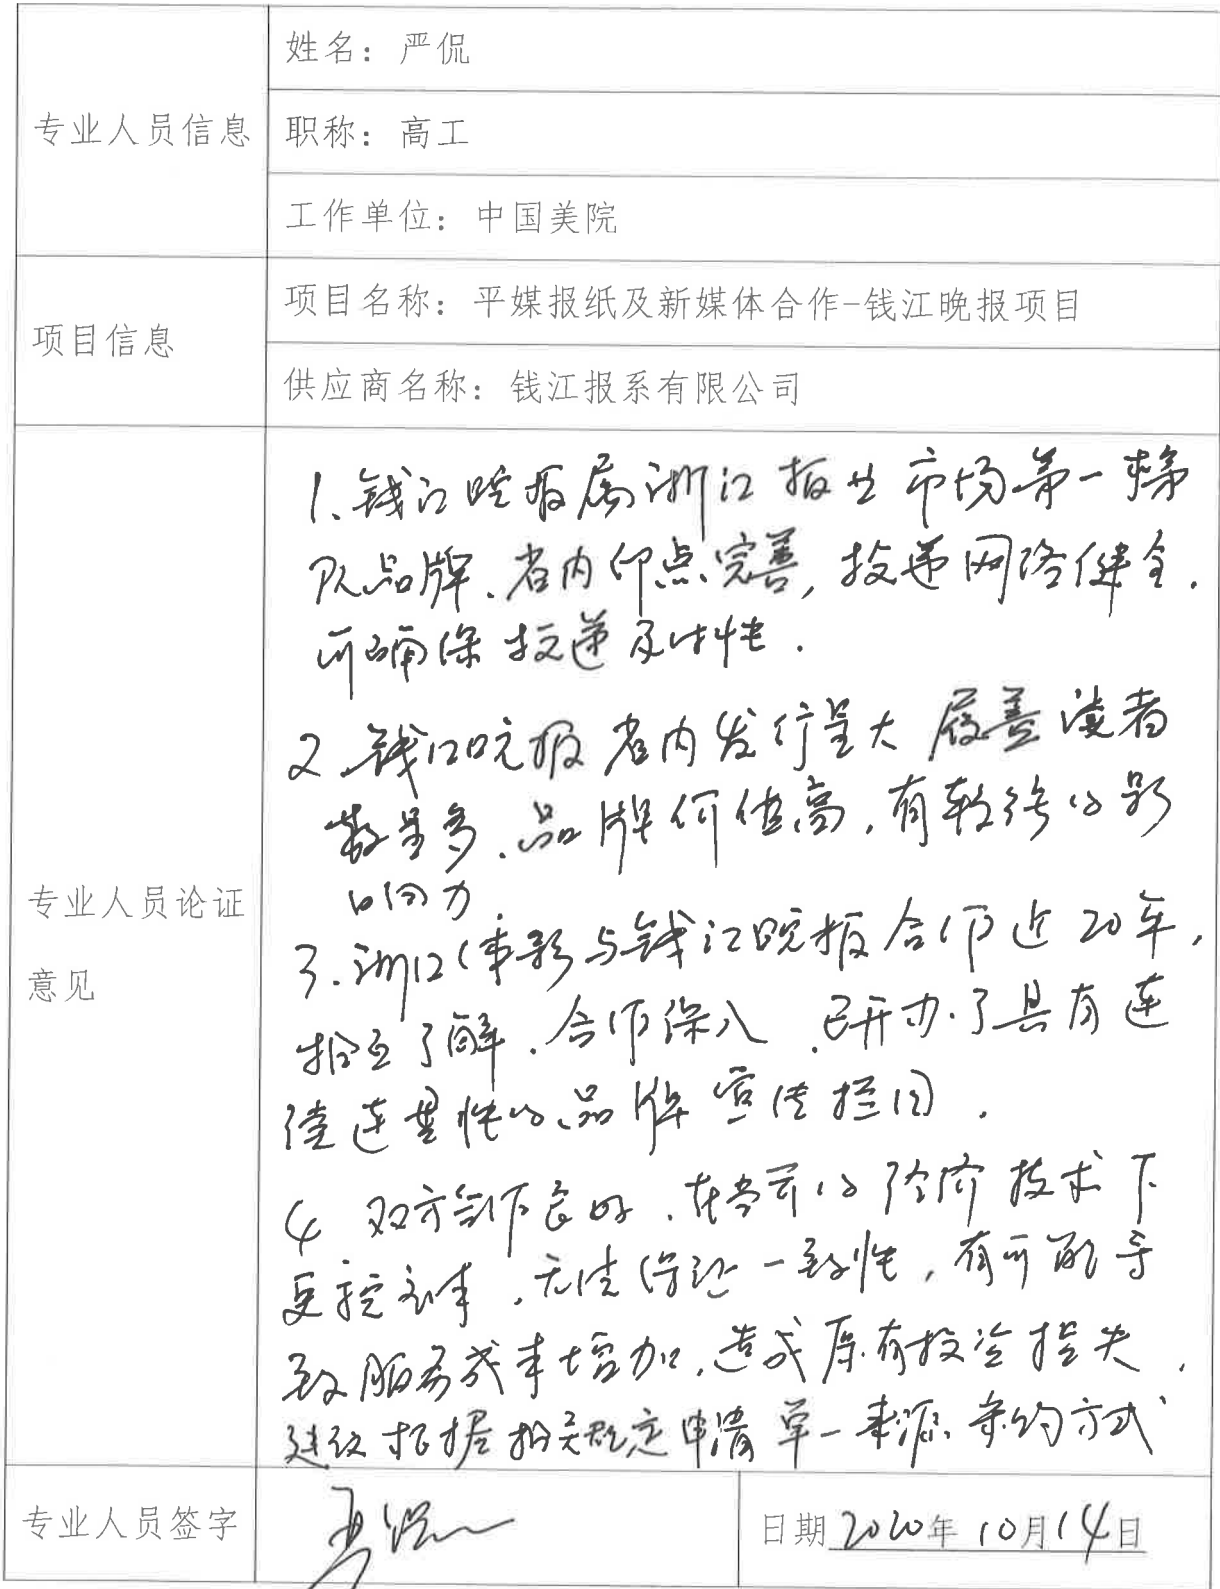 专业人员信息
姓名：严侃
职称：高工
工作单位：中国美院
项目信息
项目名称：平媒报纸及新媒体合作-钱江晚报项目
供应商名称：钱江报系有限公司
专业人员论证
意见
1、钱江晚报属浙江报业市场第一梯
队品牌、省内印点完善，投递网络健全.
可确保投递及时性.
2、钱江晚报省内发行量大 覆盖读者
数量多、品牌价值高，有较强的影
响力.
3.浙江体彩与钱江晚报合作近20年，
相互了解.合作深入.已开办了具有连
续连贯性的品牌宣传栏目.
4 双方合作良好.在当前的经济技术下
更换 ，无法保证一致性，有可能导
致服务成本增加，造成原有投资损失，
建议根据相关规定申请单一来源采购方式
专业人员签字
严侃
日期 2020年10月14日